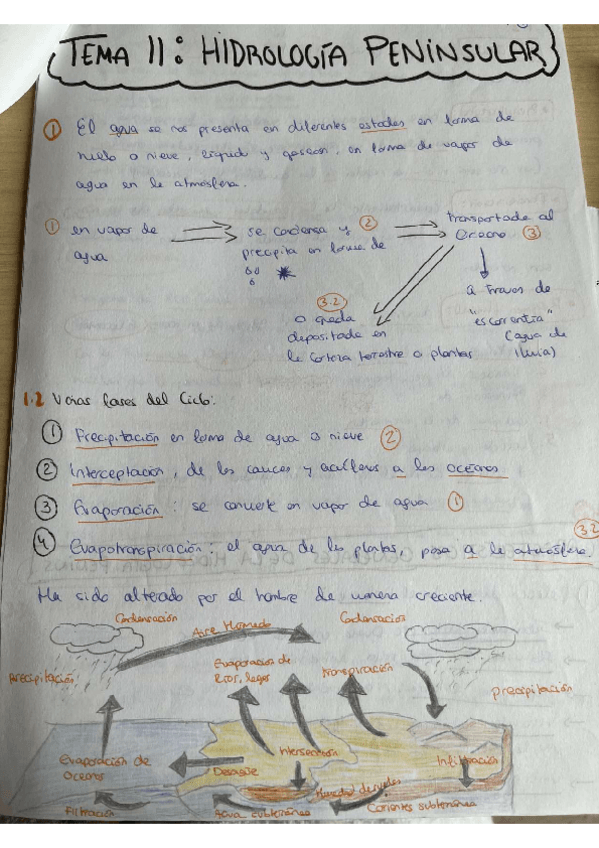 TEMA 11: HIDROLOGÍA PENINSULAR
① El agua se nos presenta en diferentes estados en forma de
hielo o nieve, líquido y gaseoso, en forma de vapor de
agua en la atmósfera.
① en vapor de
agua
se condensa y ②
precipita en forma de
transportada al
Oceano ③
a traves de
"escorrentia"
(agua de
lluvia)
3.2
o queda
depositada en
la corteza terrestre o plantas
1.2 Varias fases del Ciclo:
① Precipitación en forma de agua o nieve ②
② Interceptación, de los cauces y acuíferos a los oceanos
③ Evaporación: se convierte en vapor de agua ①
④ Evapotranspiración: el agua de las plantas, pasa a la atmósfera. 3.2
Ha sido alterado por el hombre de manera creciente.
Condensación
Aire Húmedo
Condensación
Precipitación
Evaporación de
Rios, lagos
transpiración
precipitación
Evaporación de
Oceanos
Desagüe
Intersección
Infiltración
Humedad de suelos
Filtración
Agua subterránea
Corrientes subterránea